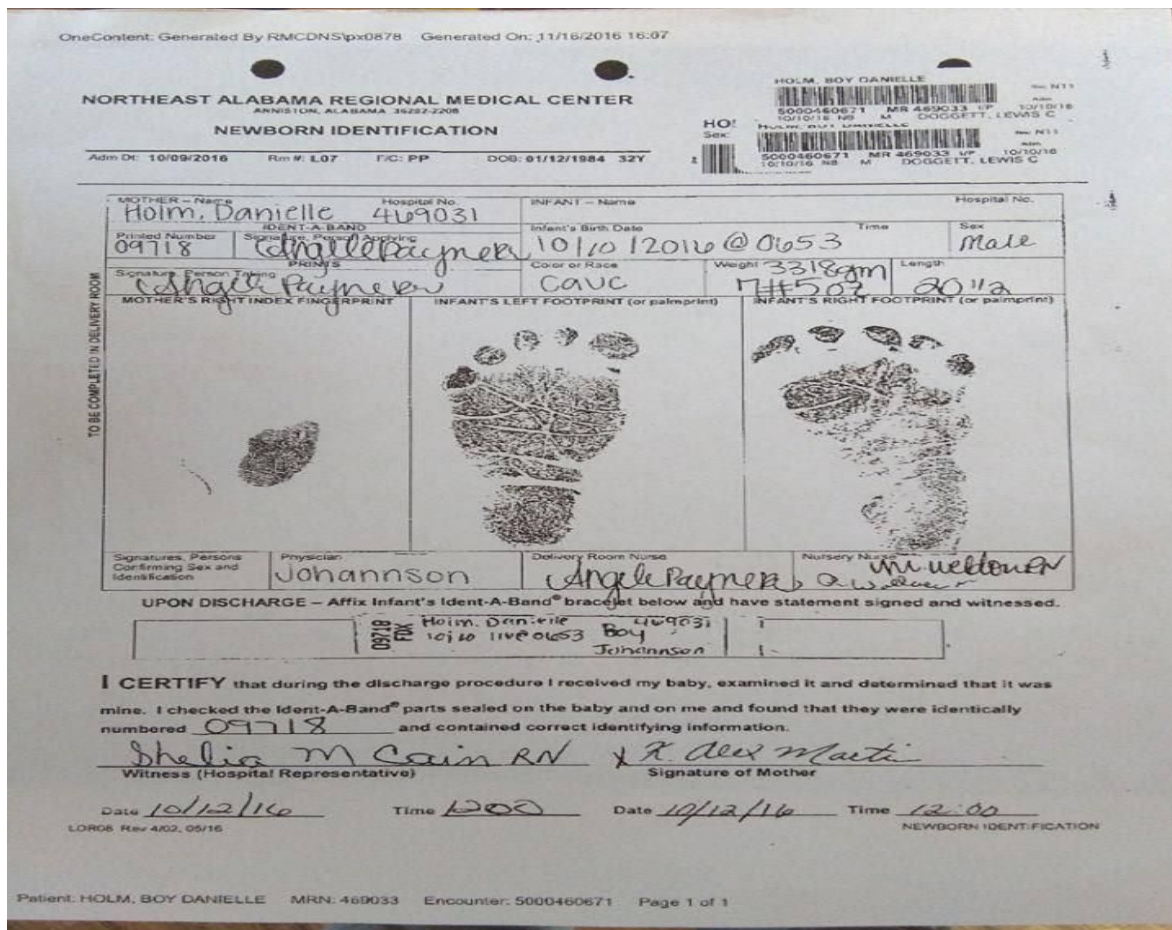 OneContent: Generated By RMCDNS\px0878 Generated On: 11/16/2016 16:07
NORTHEAST ALABAMA REGIONAL MEDICAL CENTER
ANNISTON, ALABAMA 36202-2208
NEWBORN IDENTIFICATION
HOLM, BOY DANIELLE
5000460671 MR 469033 I/P 10/10/16
10/10/16 NB M DOGGETT, LEWIS C
HO!
Sex:
5000460671 MR 469033 I/P 10/10/16
10/10/16 NB M DOGGETT, LEWIS C
Adm Dt: 10/09/2016 Rm #: L07 F/C: PP DOB: 01/12/1984 32Y
MOTHER – Name Hospital No. INFANT – Name Hospital No.
Holm, Danielle 469031
IDENT-A-BAND
Printed Number Signature, Person Applying Infant's Birth Date Time Sex
09718 10/10/2016 @ 0653 Male
PRINTS
Signature, Person Taking Color or Race Weight Length
Cauc 3318gm 20 1/2
7#5oz
MOTHER'S RIGHT INDEX FINGERPRINT INFANT'S LEFT FOOTPRINT (or palmprint) INFANT'S RIGHT FOOTPRINT (or palmprint)
TO BE COMPLETED IN DELIVERY ROOM
Signatures, Persons Confirming Sex and Identification Physician Delivery Room Nurse Nursery Nurse
Johannson
UPON DISCHARGE – Affix Infant's Ident-A-Band® bracelet below and have statement signed and witnessed.
09718 FDX Holm, Danielle 469031
0653 Boy
Johannson
I CERTIFY that during the discharge procedure I received my baby, examined it and determined that it was
mine. I checked the Ident-A-Band® parts sealed on the baby and on me and found that they were identically
numbered 09718 and contained correct identifying information.
Shelia M Cain RN X K. Alex Martin
Witness (Hospital Representative) Signature of Mother
Date 10/12/16 Time 1200 Date 10/12/16 Time 12:00
LOR08 Rev 4/02, 05/16 NEWBORN IDENTIFICATION
Patient: HOLM, BOY DANIELLE MRN: 469033 Encounter: 5000460671 Page 1 of 1